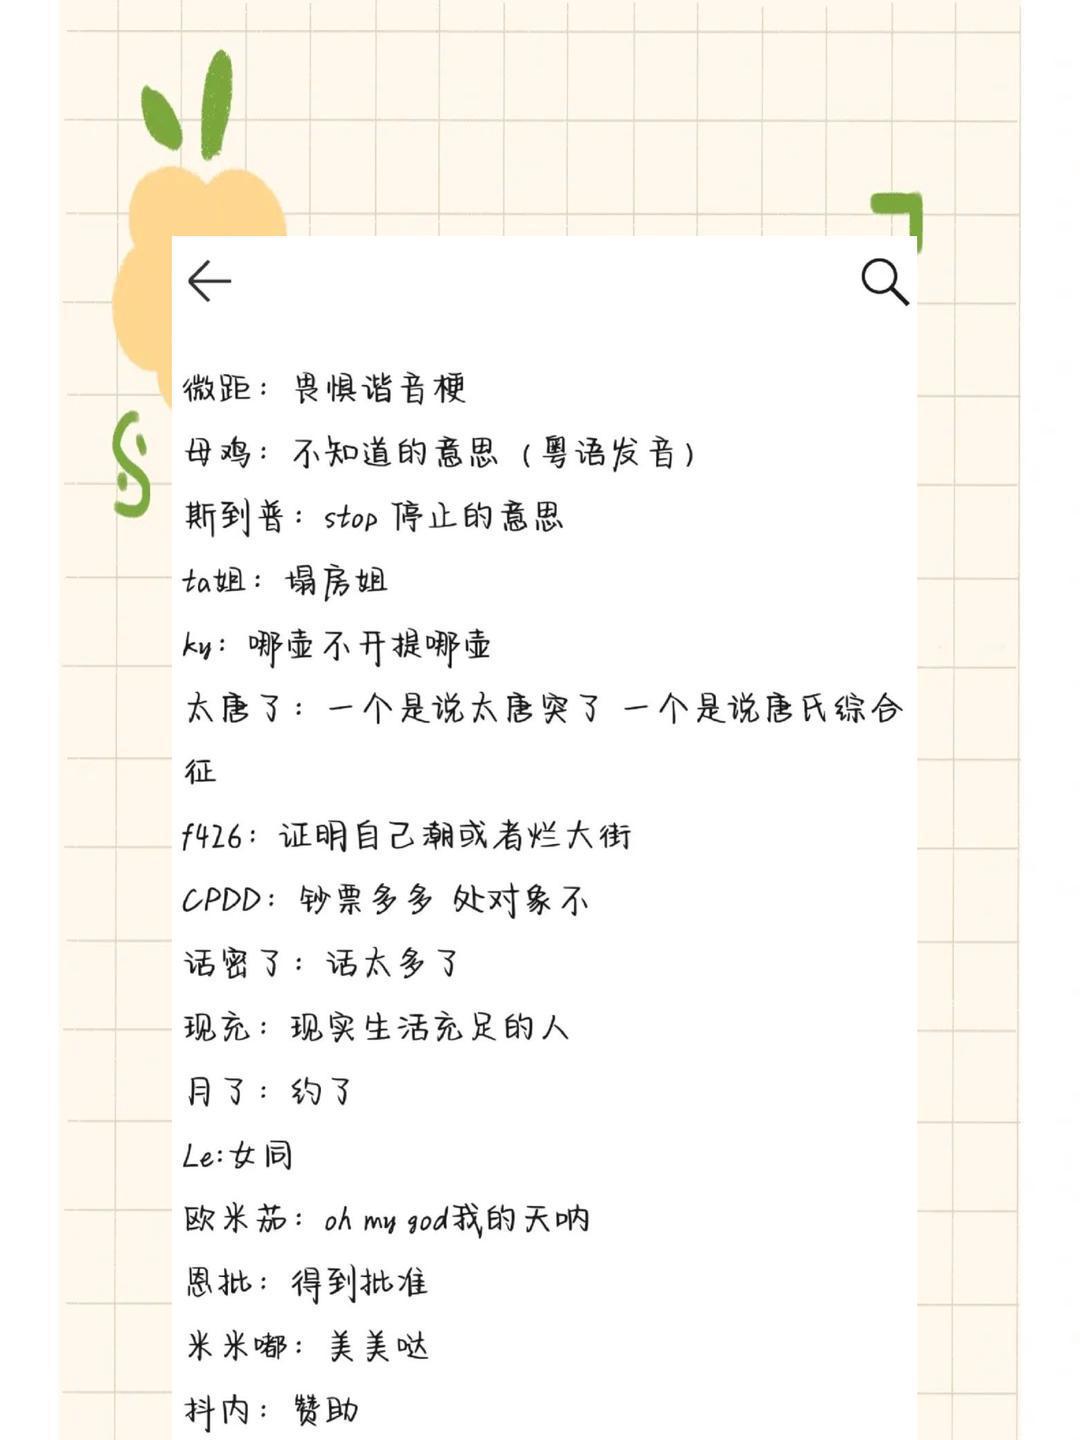 微距：畏惧谐音梗
母鸡：不知道的意思（粤语发音）
斯到普：stop 停止的意思
ta姐：塌房姐
ky：哪壶不开提哪壶
太唐了：一个是说太唐突了 一个是说唐氏综合
征
f426：证明自己潮或者烂大街
CPDD：钞票多多 处对象不
话密了：话太多了
现充：现实生活充足的人
月了：约了
Le:女同
欧米茄：oh my god我的天呐
恩批：得到批准
米米嘟：美美哒
抖内：赞助